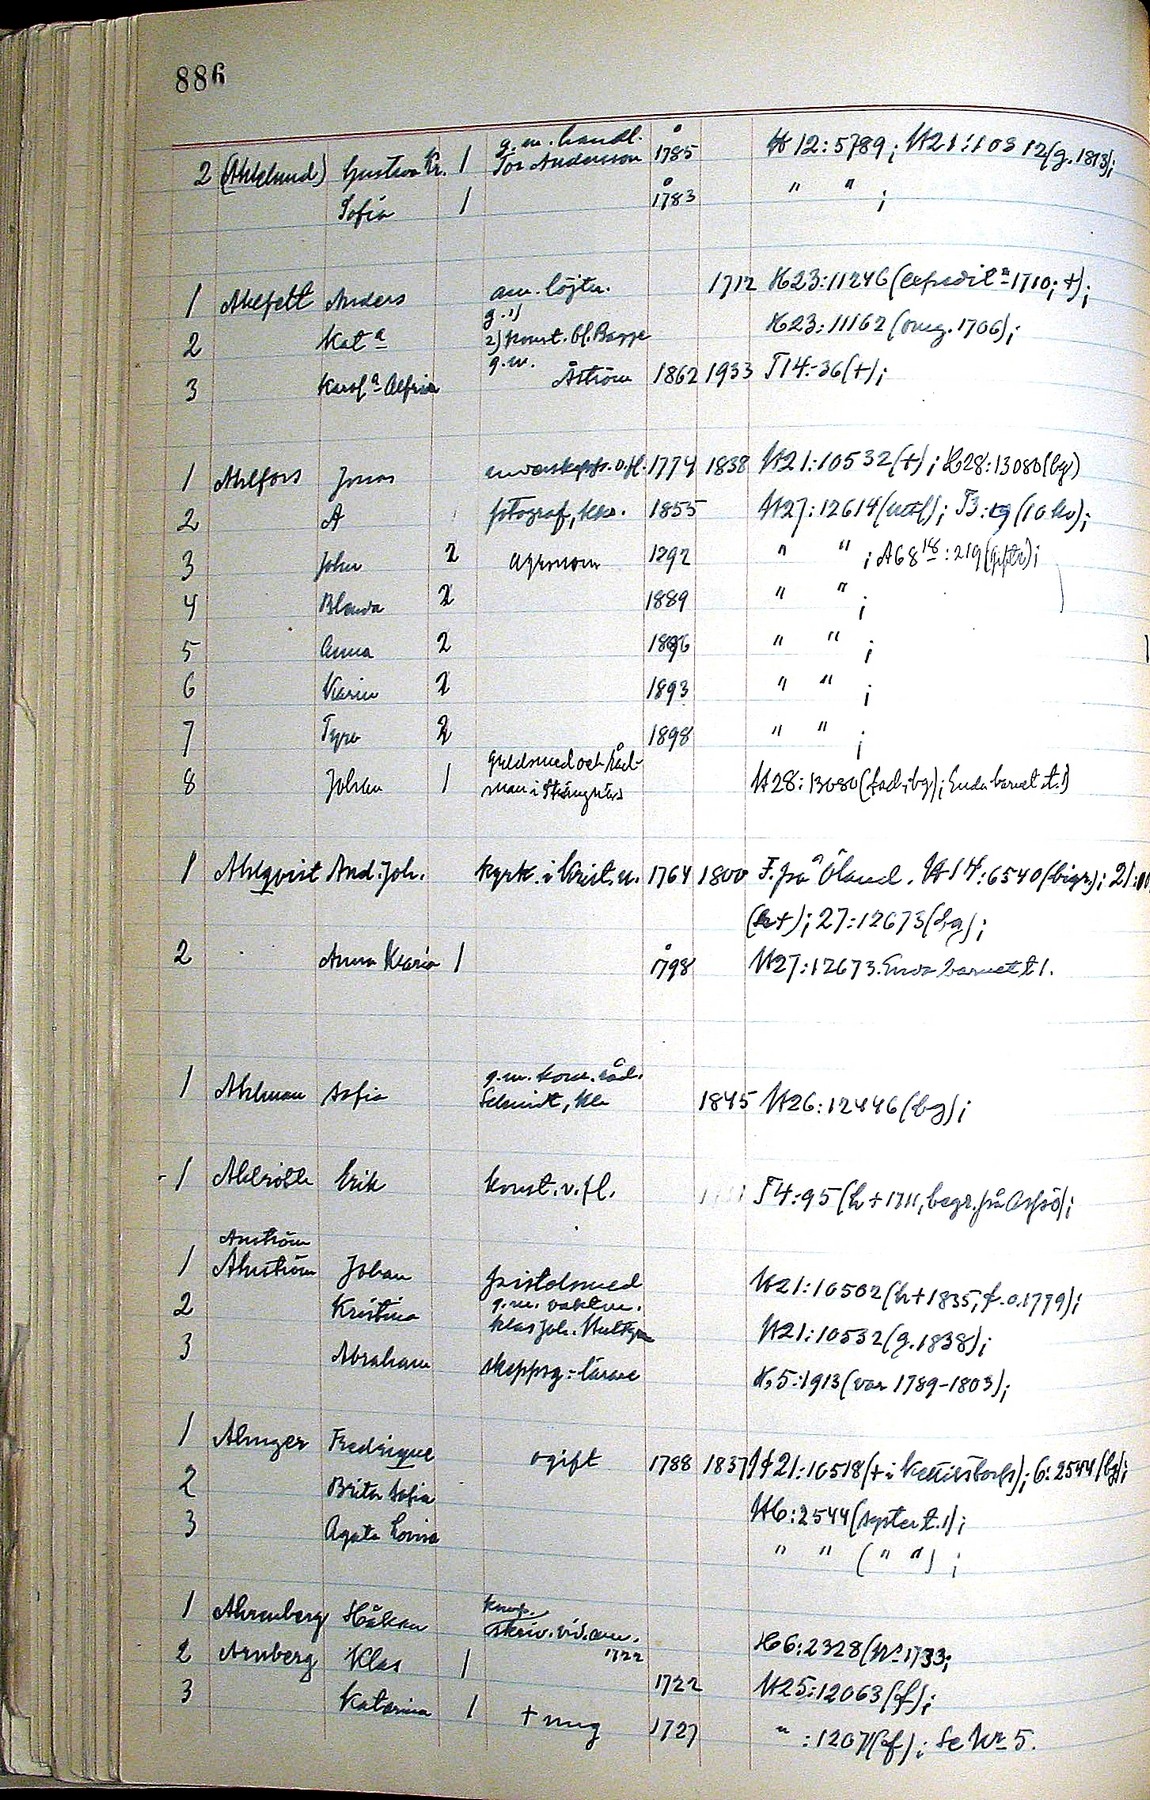 886
g.m. handl.
2 (Ahlelund) Gustava Kr. 1 Tor Andersson å 1785 H12:5789; H21:10312(g.1813);
Sofia 1 å 1783 " " ;
1 Ahlfelt Anders am. löjtn. 1712 H23:11246( 1710; +);
g. 1)
2 Kata 2) konst. Ol. Bagge H23:11162(omg. 1706);
g.m.
3 Karola Alfrida Åström 1862 1933 T14:36(+);
1 Ahlfors Jonas underskepps. v. fl. 1774 1838 H21:10532(+); H28:13080(bg)
2 A fotograf, Kkr. 1855 H27:12614(utfl); T3: (10 kv);
3 John 2 agronom 1892 " " ; A68 18:219(gftr);
4 Blenda 2 1889 " " ;
5 Anna 2 1896 " " ;
6 Karin 2 1893 " " ;
7 Tyra 2 1898 " " ;
guldsmed och råd-
8 Johan 1 man i Strängnäs H28:13080(fad.; bg); Enda barnet t. 1)
1 Ahlqvist And. Joh. kyrk. i Krist. n. 1764 1800 F. på Öland. H14:6540(bigr.); 21:
(h+); 27:12673(bg);
2 Anna Maria 1 å 1798 H27:12673. Enda barnet t 1.
g.m. kom. råd.
1 Ahlman Sofia Schmidt, Kka 1845 H26:12446(bg);
1 Ahlröth Erik konst. v. fl. T4:95(h+1711, begr. på Aspö);
Anström
1 Ahnström Johan pistolsmed H21:10502(h+1835, f.o.1779);
g.m. vaktm.
2 Kristina Klas Joh. H21:10532(g.1838);
3 Abraham skeppsg:lärare H5:1913(var 1789-1803);
1 Ahnger Fredrique ogift 1788 1837 H21:10518(+ i ); 6:2544(bg);
2 Brita Sofia H6:2544(syster t. 1);
3 Agata Lovisa " " ( " " ) ;
1 Ahrenberg Håkan skriv. vid am. H6:2328(Nr 1733;
2 Arnberg Klas 1 1722 1722 H25:12063(f);
3 Katarina 1 + ung 1727 " :1207(f); Se Nr 5.